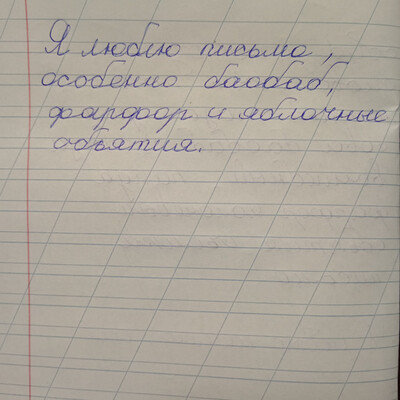 Я люблю письма,
особенно баобаб,
фарфор и яблочные
объятия.